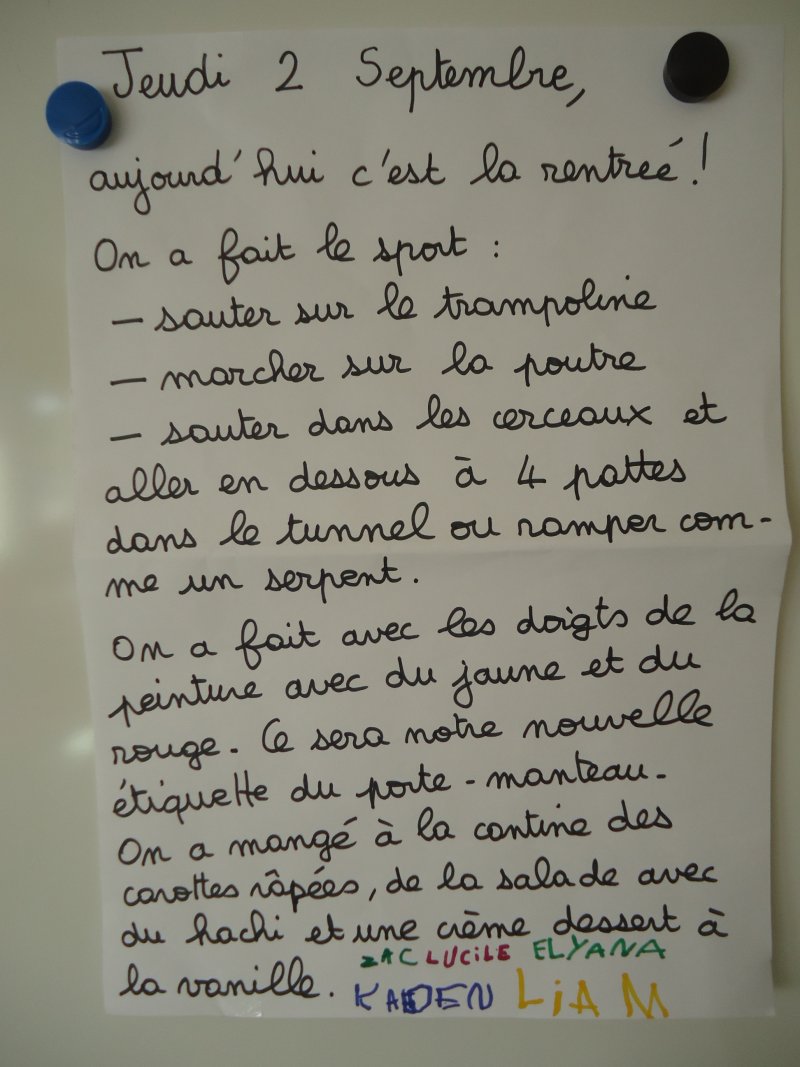 Jeudi 2 Septembre,
aujourd'hui c'est la rentreé!
On a fait le sport :
— sauter sur le trampoline
— marcher sur la poutre
— sauter dans les cerceaux et
aller en dessous à 4 pattes
dans le tunnel ou ramper com-
me un serpent.
On a fait avec les doigts de la
peinture avec du jaune et du
rouge. Ce sera notre nouvelle
étiquette du porte-manteau.
On a mangé à la cantine des
carottes râpées, de la salade avec
du hachi et une crème dessert à
la vanille. ZAC LUCiLE ELYANA
KADEN LiAM